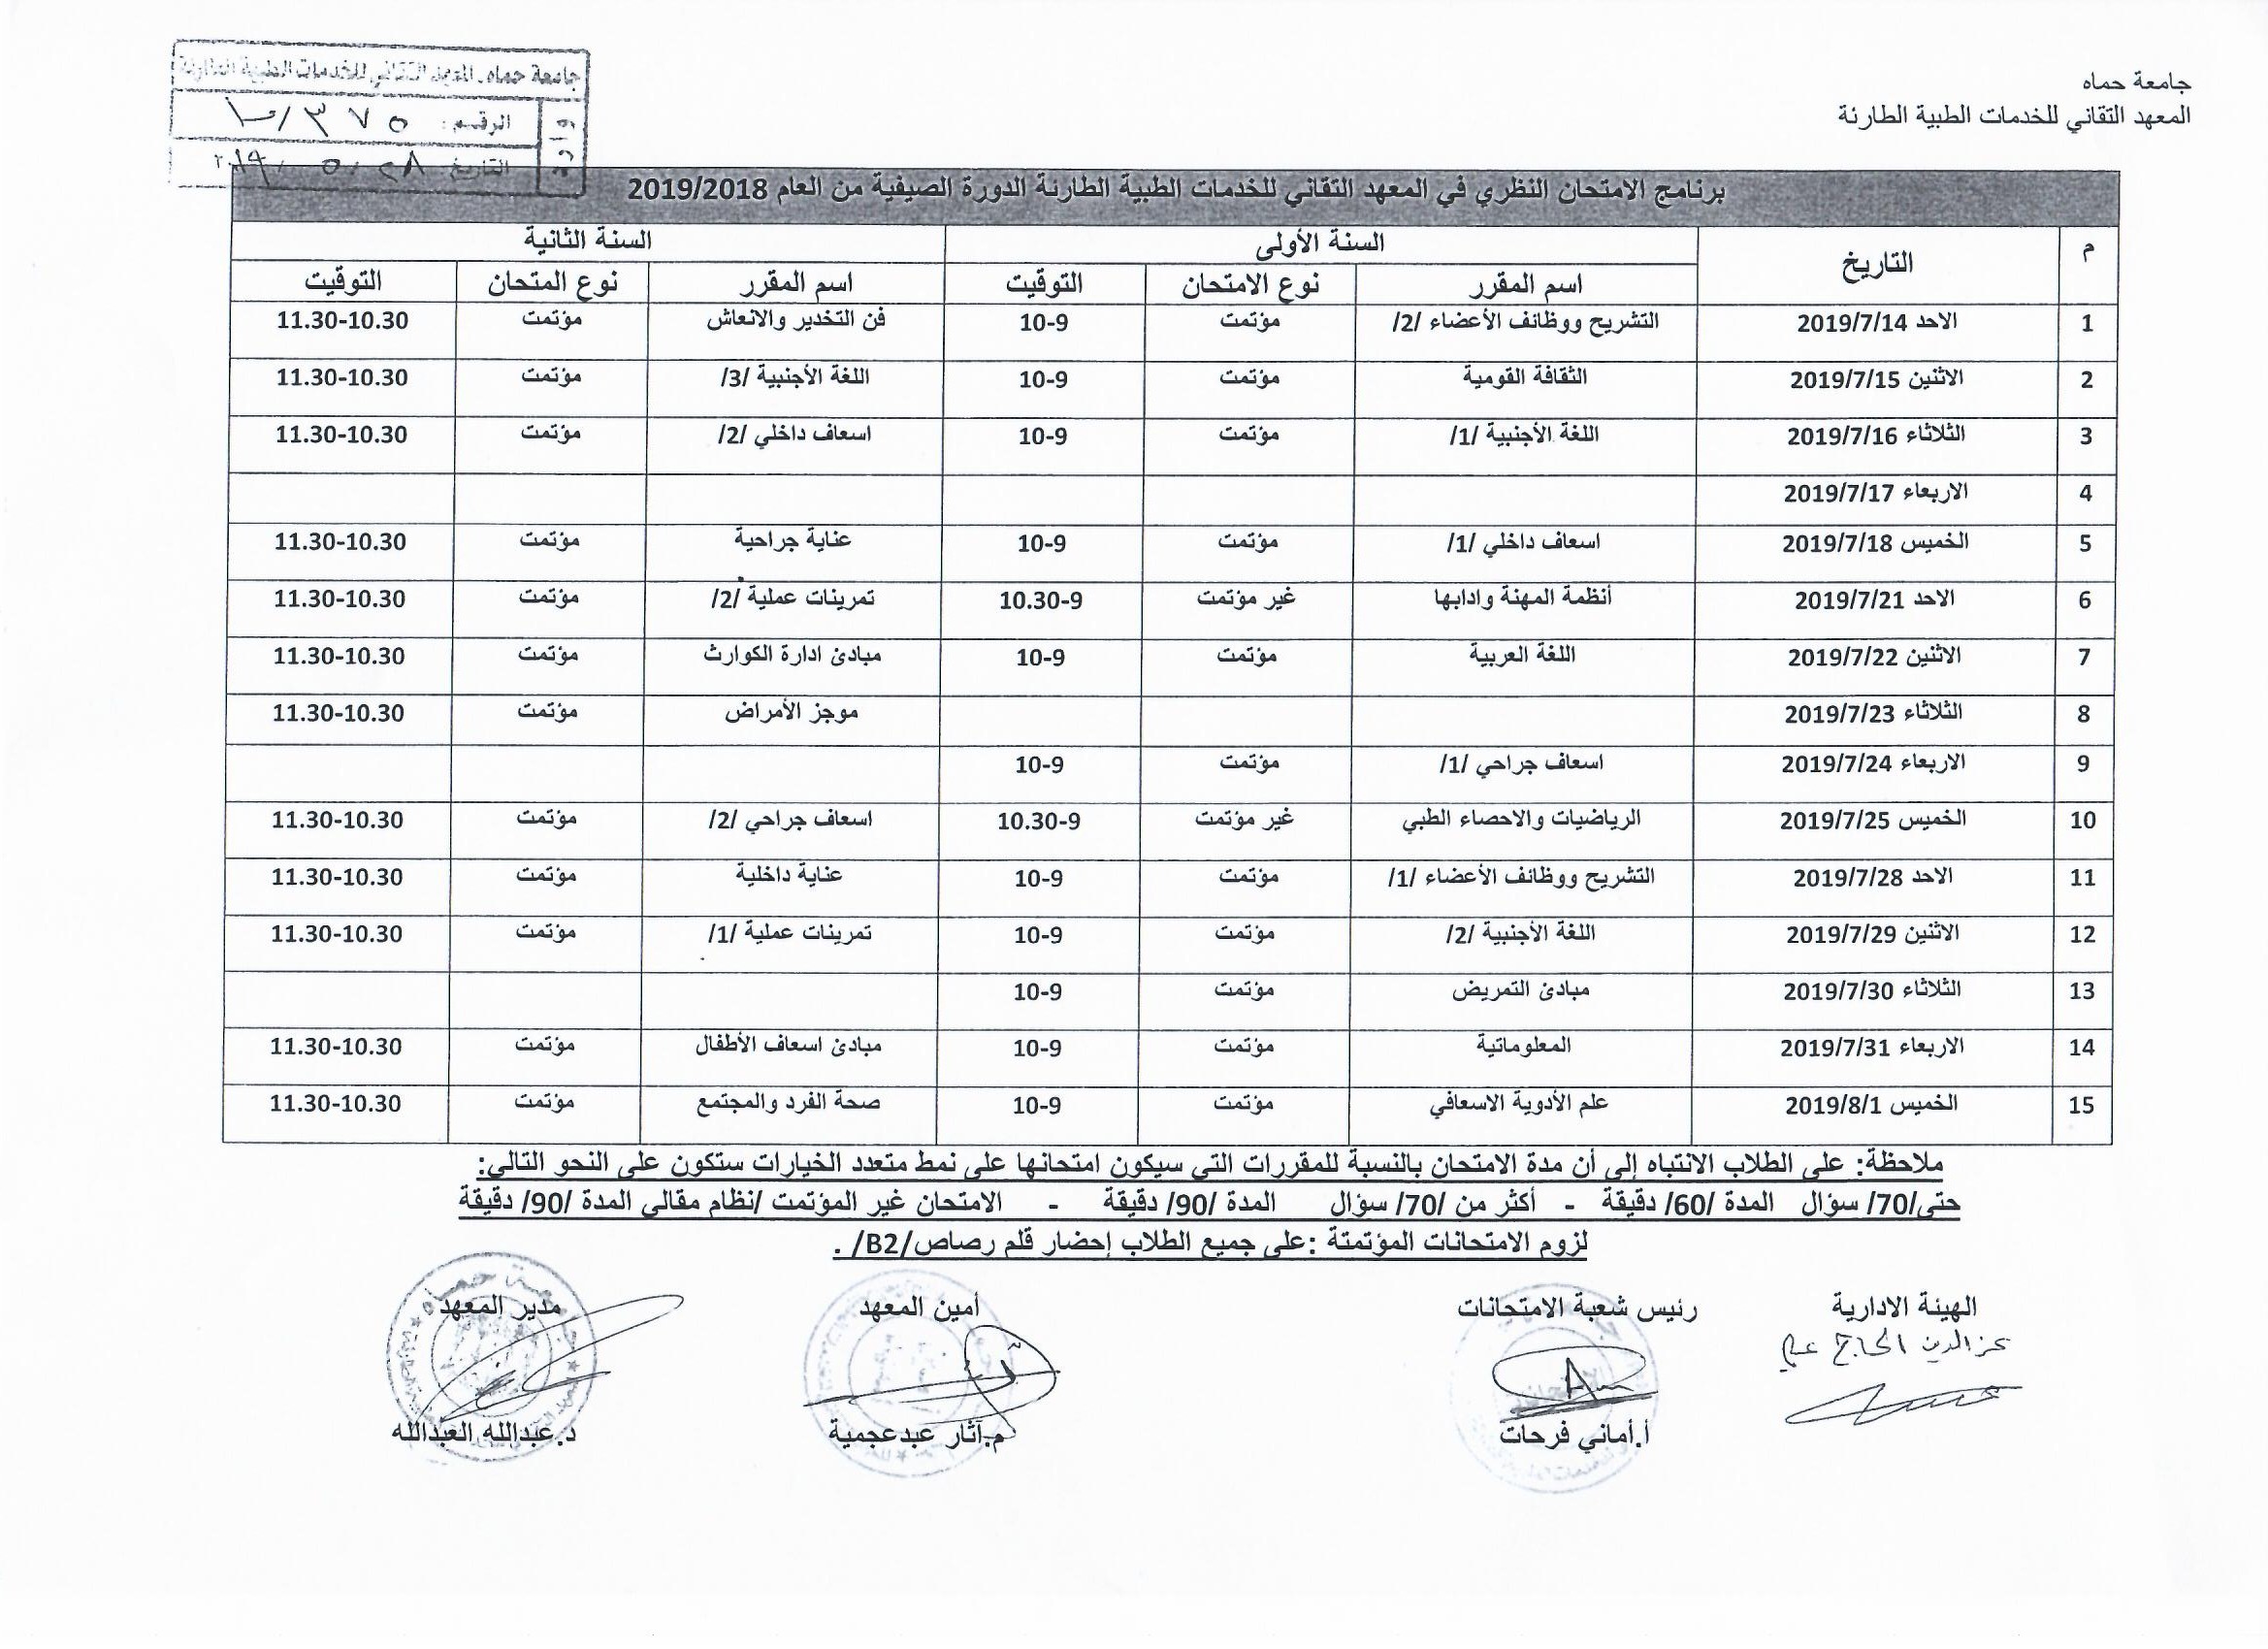 جامعة حماه
المعهد التقاني للخدمات الطبية الطارئة
جامعة حماه. المعهد التقاني للخدمات الطبية الطارئة
الرقم: ٣٧٥/
التاريخ: ٢٨/٥/٢٠١٩
برنامج الامتحان النظري في المعهد التقاني للخدمات الطبية الطارئة الدورة الصيفية من العام 2019/2018
م التاريخ السنة الأولى السنة الثانية
اسم المقرر نوع الامتحان التوقيت اسم المقرر نوع المتحان التوقيت
1 الاحد 2019/7/14 التشريح ووظائف الأعضاء /2/ مؤتمت 10-9 فن التخدير والانعاش مؤتمت 11.30-10.30
2 الاثنين 2019/7/15 الثقافة القومية مؤتمت 10-9 اللغة الأجنبية /3/ مؤتمت 11.30-10.30
3 الثلاثاء 2019/7/16 اللغة الأجنبية /1/ مؤتمت 10-9 اسعاف داخلي /2/ مؤتمت 11.30-10.30
4 الاربعاء 2019/7/17
5 الخميس 2019/7/18 اسعاف داخلي /1/ مؤتمت 10-9 عناية جراحية مؤتمت 11.30-10.30
6 الاحد 2019/7/21 أنظمة المهنة وادابها غير مؤتمت 10.30-9 تمرينات عملية /2/ مؤتمت 11.30-10.30
7 الاثنين 2019/7/22 اللغة العربية مؤتمت 10-9 مبادئ ادارة الكوارث مؤتمت 11.30-10.30
8 الثلاثاء 2019/7/23 موجز الأمراض مؤتمت 11.30-10.30
9 الاربعاء 2019/7/24 اسعاف جراحي /1/ مؤتمت 10-9
10 الخميس 2019/7/25 الرياضيات والاحصاء الطبي غير مؤتمت 10.30-9 اسعاف جراحي /2/ مؤتمت 11.30-10.30
11 الاحد 2019/7/28 التشريح ووظائف الأعضاء /1/ مؤتمت 10-9 عناية داخلية مؤتمت 11.30-10.30
12 الاثنين 2019/7/29 اللغة الأجنبية /2/ مؤتمت 10-9 تمرينات عملية /1/ مؤتمت 11.30-10.30
13 الثلاثاء 2019/7/30 مبادئ التمريض مؤتمت 10-9
14 الاربعاء 2019/7/31 المعلوماتية مؤتمت 10-9 مبادئ اسعاف الأطفال مؤتمت 11.30-10.30
15 الخميس 2019/8/1 علم الأدوية الاسعافي مؤتمت 10-9 صحة الفرد والمجتمع مؤتمت 11.30-10.30
ملاحظة: على الطلاب الانتباه إلى أن مدة الامتحان بالنسبة للمقررات التي سيكون امتحانها على نمط متعدد الخيارات ستكون على النحو التالي:
حتى/70/ سؤال المدة /60/ دقيقة - أكثر من /70/ سؤال المدة /90/ دقيقة - الامتحان غير المؤتمت /نظام مقالي المدة /90/ دقيقة
لزوم الامتحانات المؤتمتة :على جميع الطلاب إحضار قلم رصاص/B2/ .
الهيئة الادارية رئيس شعبة الامتحانات أمين المعهد مدير المعهد
عز الدين الحاج علي
أ.أماني فرحات م.آثار عبدعجمية د.عبدالله العبدالله